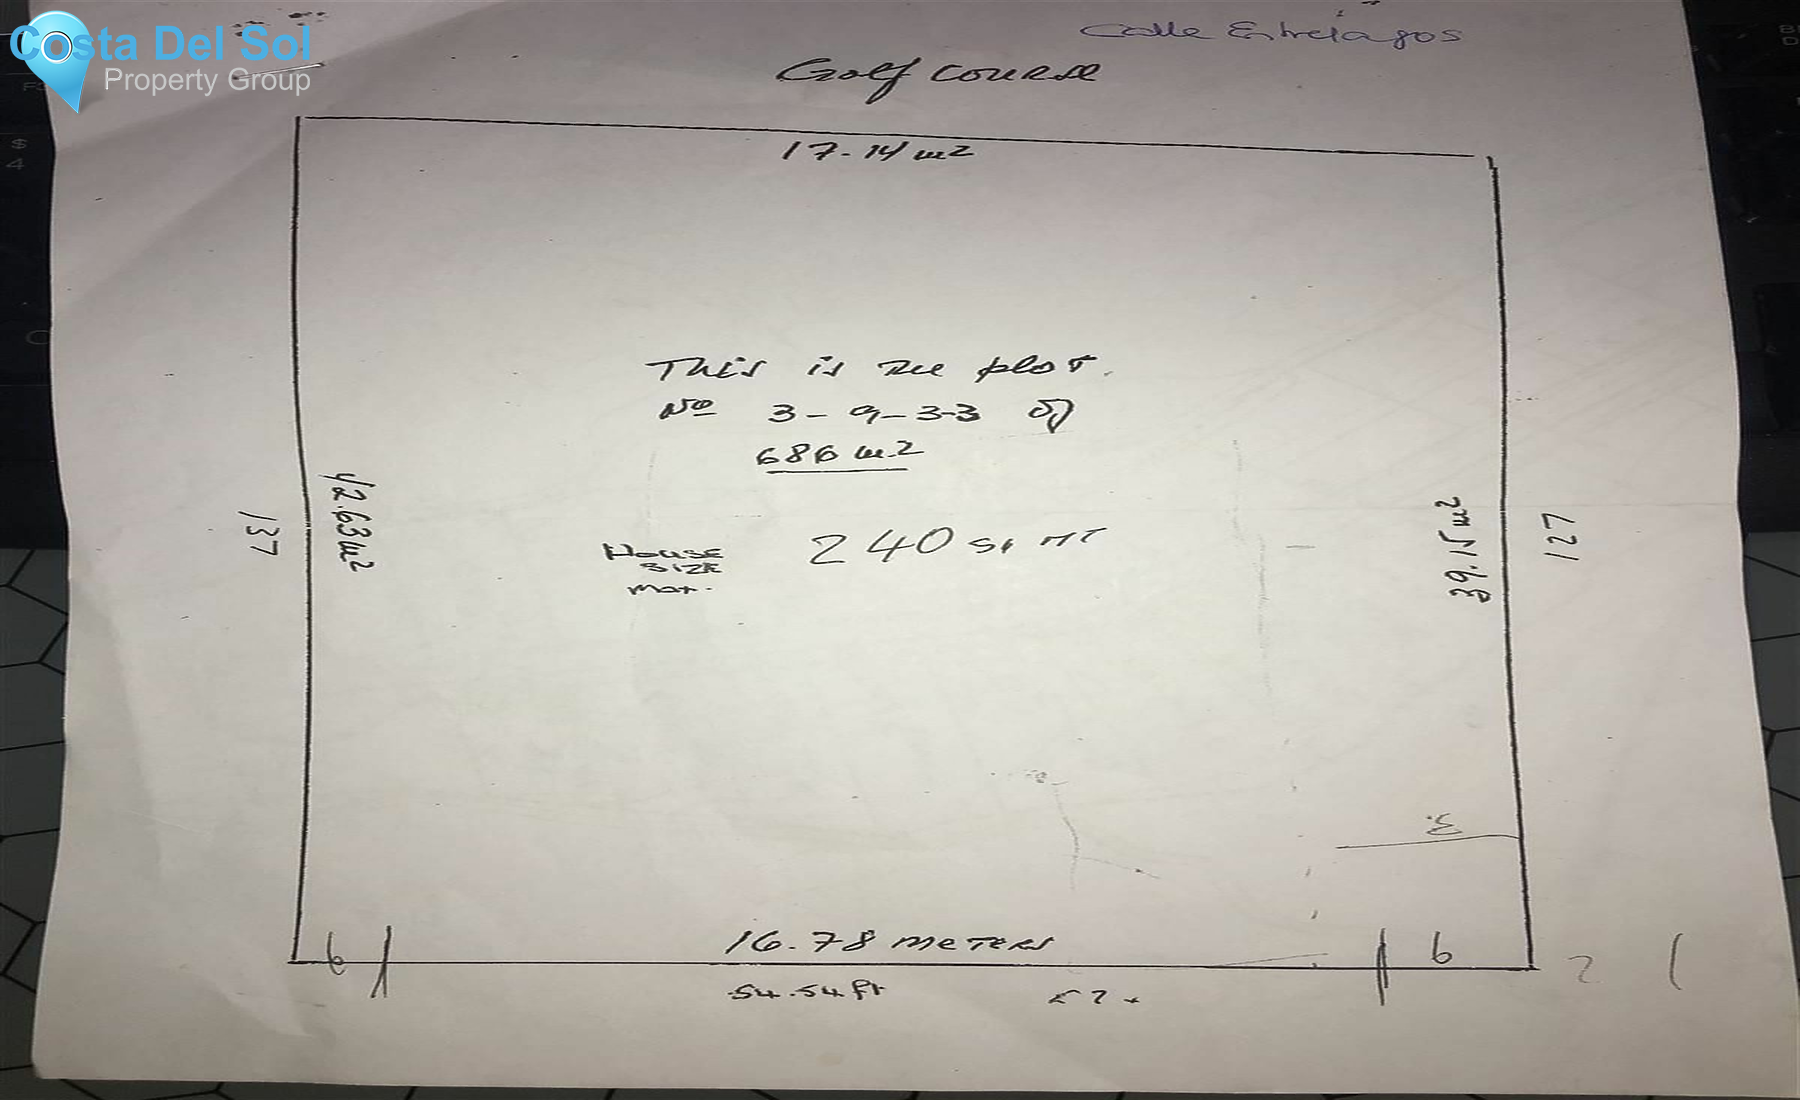 Costa Del Sol
Property Group
Calle Entrelagos
Golf COURSE
17.14 m2
This is the plot.
Nº 3-9-33 of
686 m2
42.63 m2
137
39.15 m2
127
HOUSE
SIZE
Max.
240 Sq MT
3.
6
16.78 METERS
6
2
54.54 ft